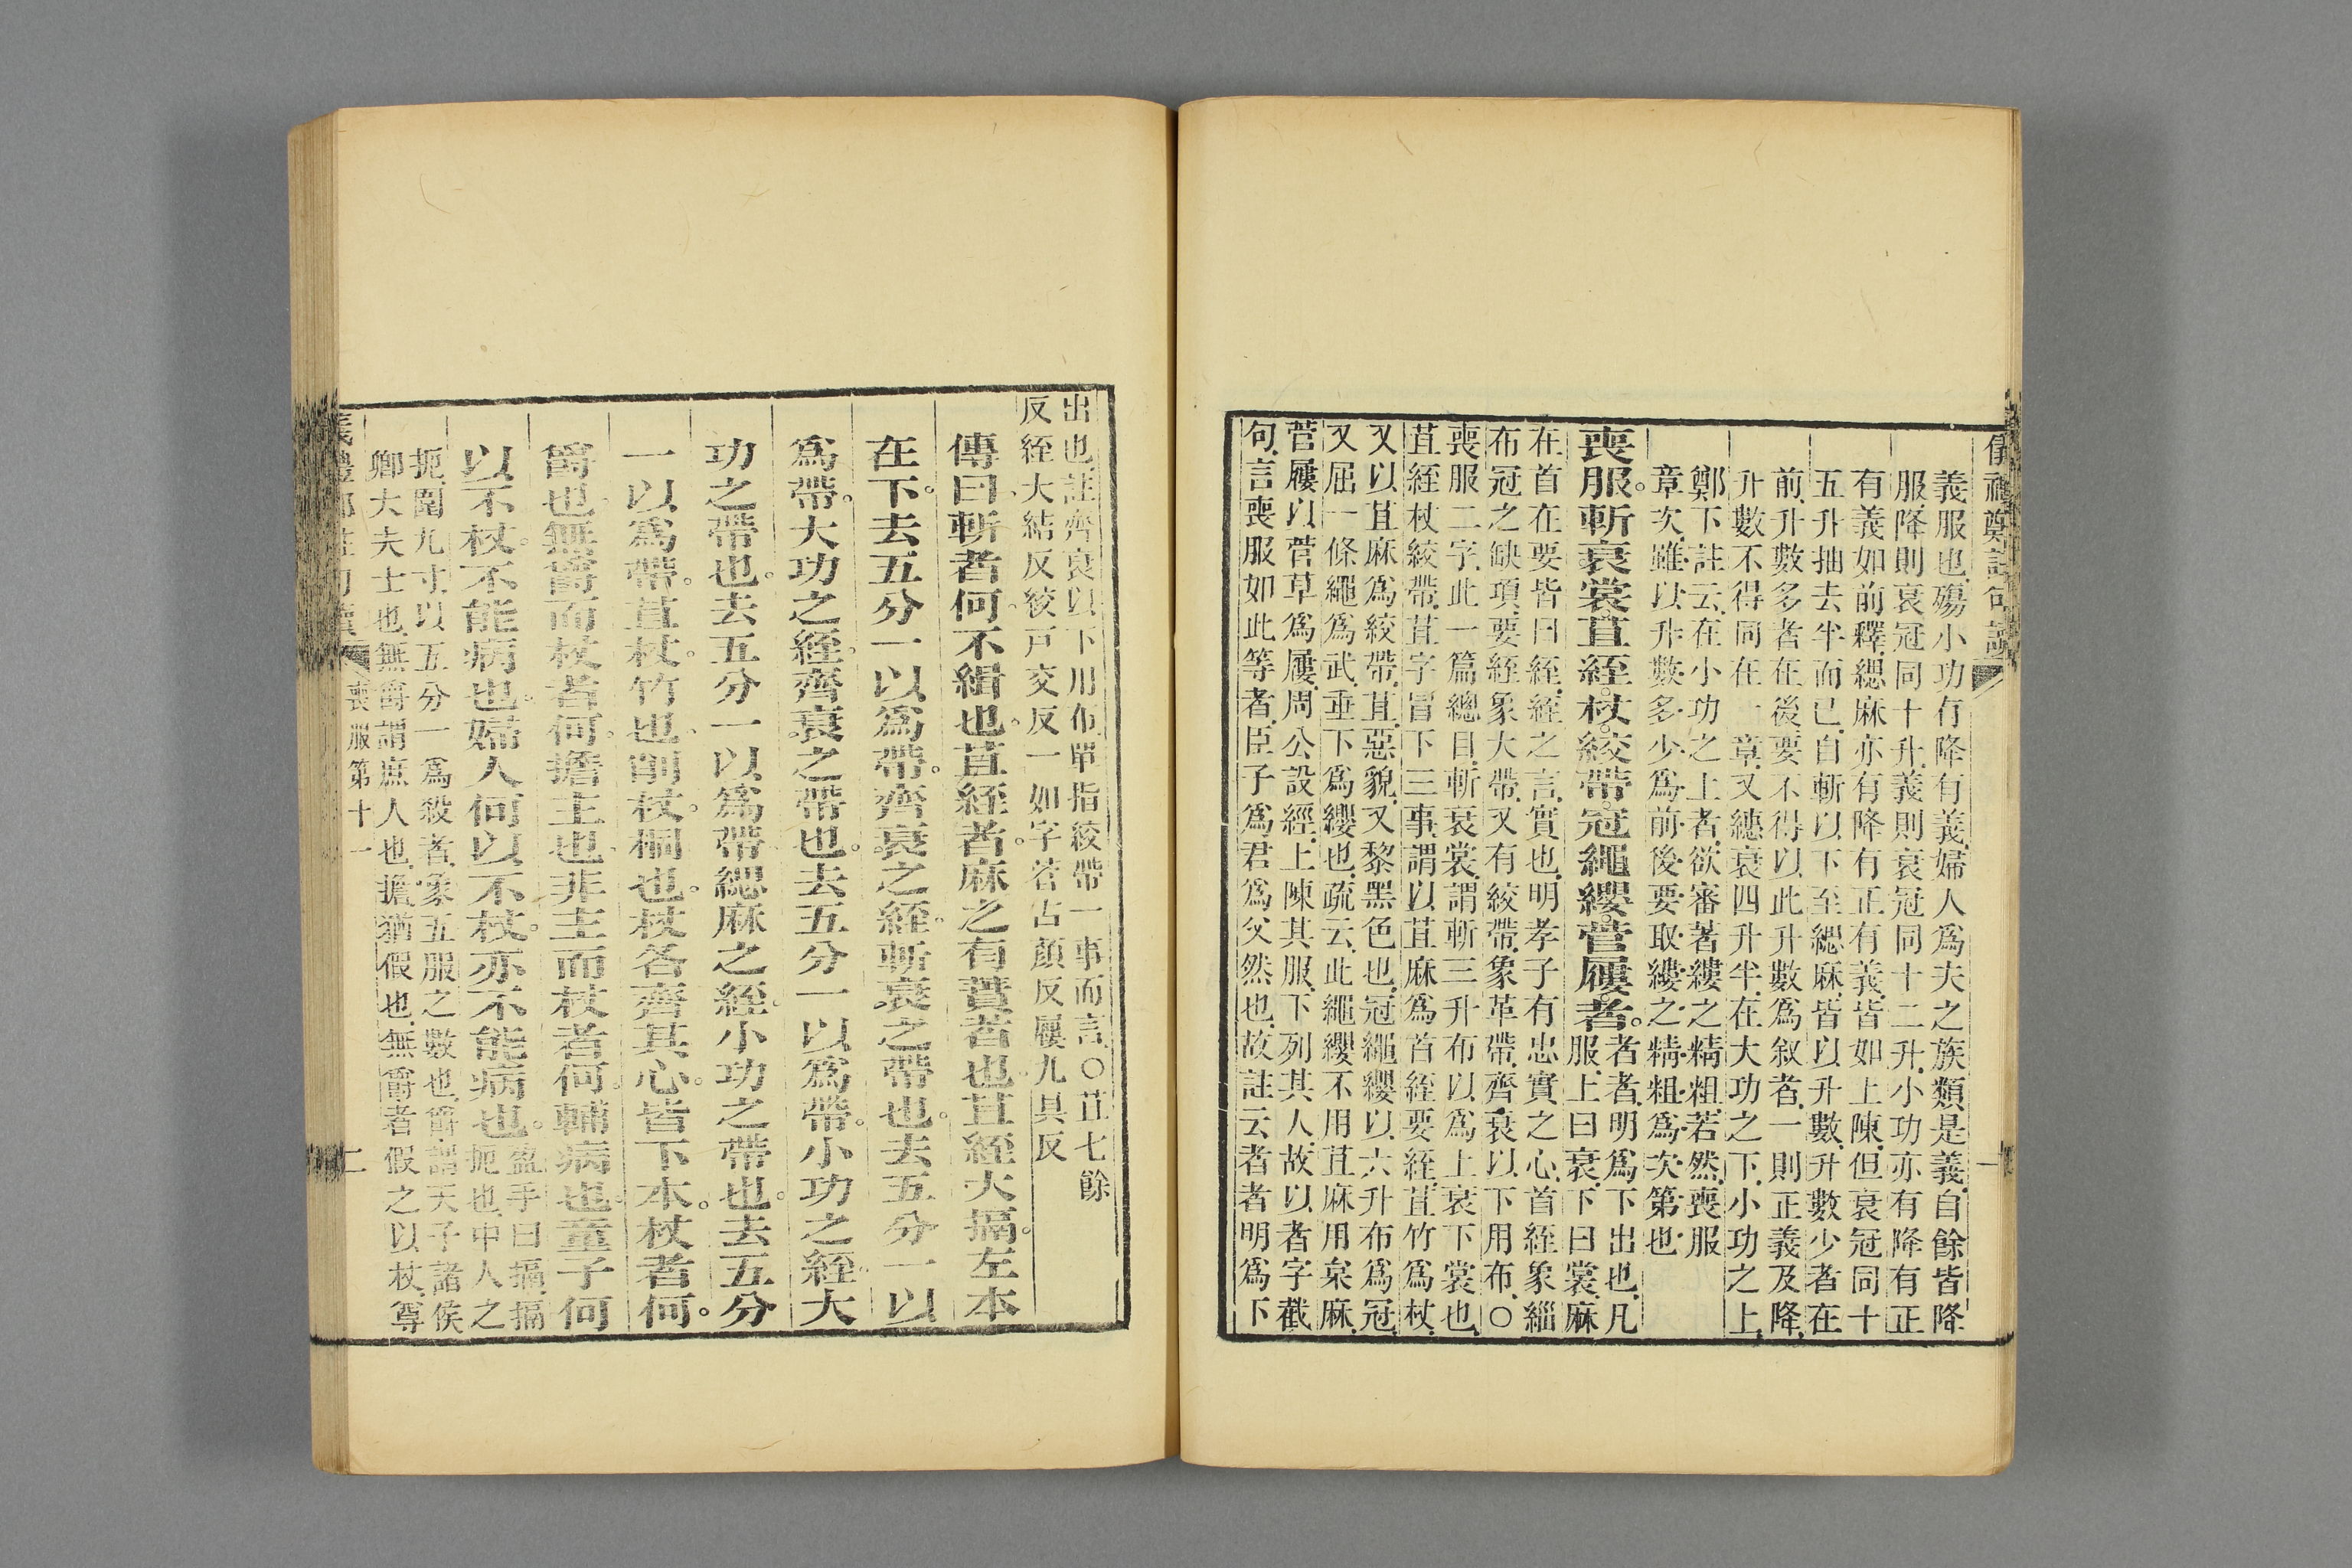 儀禮鄭註句讀
義服也殤小功有降有義婦人爲夫之族類是義自餘皆降
服降則衰冠同十升義則衰冠同十二升小功亦有降有正
有義如前釋緦麻亦有降有正有義皆如上陳但衰冠同十
五升抽去半而已自斬以下至緦麻皆以升數升數少者在
前升數多者在後要不得以此升數爲叙者一則正義及降
升數不得同在一章又繐衰四升半在大功之下小功之上
鄭下註云在小功之上者欲審著縷之精粗若然喪服
章次雖以升數多少爲前後要取縷之精粗爲次第也
喪服。斬衰裳苴絰杖絞帶冠繩纓菅屨者。
者者明爲下出也凡
服上曰衰下曰裳麻
在首在要皆曰絰絰之言實也明孝子有忠實之心首絰象緇
布冠之缺項要絰象大帶又有絞帶象革帶齊衰以下用布〇
喪服二字此一篇總目斬衰裳謂斬三升布以爲上衰下裳也
苴絰杖絞帶苴字冒下三事謂以苴麻爲首絰要絰苴竹爲杖
又以苴麻爲絞帶苴惡貌又黎黑色也冠繩纓以六升布爲冠
又屈一條繩爲武垂下爲纓也疏云此繩纓不用苴麻用枲麻
菅屨以菅草爲屨周公設經上陳其服下列其人故以者字截
句言喪服如此等者臣子爲君爲父然也故註云者者明爲下
出也註齊衰以下用布單指絞帶一事而言〇苴七餘
反絰大結反絞戸交反一如字菅古顏反屨九具反
傳曰斬者何不緝也苴絰者麻之有蕡者也苴絰大搹左本
在下去五分一以爲帶齊衰之絰斬衰之帶也去五分一以
爲帶大功之絰齊衰之帶也去五分一以爲帶小功之絰大
功之帶也去五分一以爲帶緦麻之絰小功之帶也去五分
一以爲帶苴杖竹也削杖桐也杖各齊其心皆下本杖者何
爵也無爵而杖者何擔主也非主而杖者何輔病也童子何
以不杖不能病也婦人何以不杖亦不能病也
盈手曰搹搹
扼也中人之
扼圍九寸以五分一爲殺者象五服之數也爵謂天子諸侯
卿大夫士也無爵謂庶人也擔猶假也無爵者假之以杖尊
喪服第十一
二